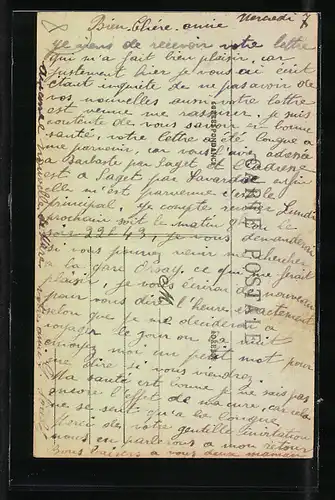 Mercredi
Bien Chère amie
Je viens de recevoir votre lettre
qui m'a fait bien plaisir, car
justement hier je vous ai écrit
étant inquiète de ne pas avoir de
vos nouvelles aussi votre lettre
est venue me rassurer. Je suis
contente de vous savoir en bonne
santé, votre lettre a été longue a
me parvenir, car vous l'avez adressée
a Barbaste par Saget et l'adresse
est a Saget par enfin
elle m'est parvenue c'est le
principal. Je compte rentrer Lundi
prochain soit le matin ou le
soir 22h43, je vous demanderai
si vous pouvez venir me chercher
a la gare Orsay, ce qui me ferait
plaisir, je vous écrirai de nouveau
pour vous dire l'heure exactement
selon que je me déciderai a
voyager le jour ou la nuit
envoyez moi un petit mot pour
me dire si vous viendrez.
Ma santé est bonne je ne sais pas
encore l'effet de ma cure, car cela
ne se sent qu'a la longue.
Merci de votre gentille invitation
nous en parlerons a mon retour
Bons baisers a vous deux
CARTE POSTALE
CORRESPONDANCE
ADRESSE
M